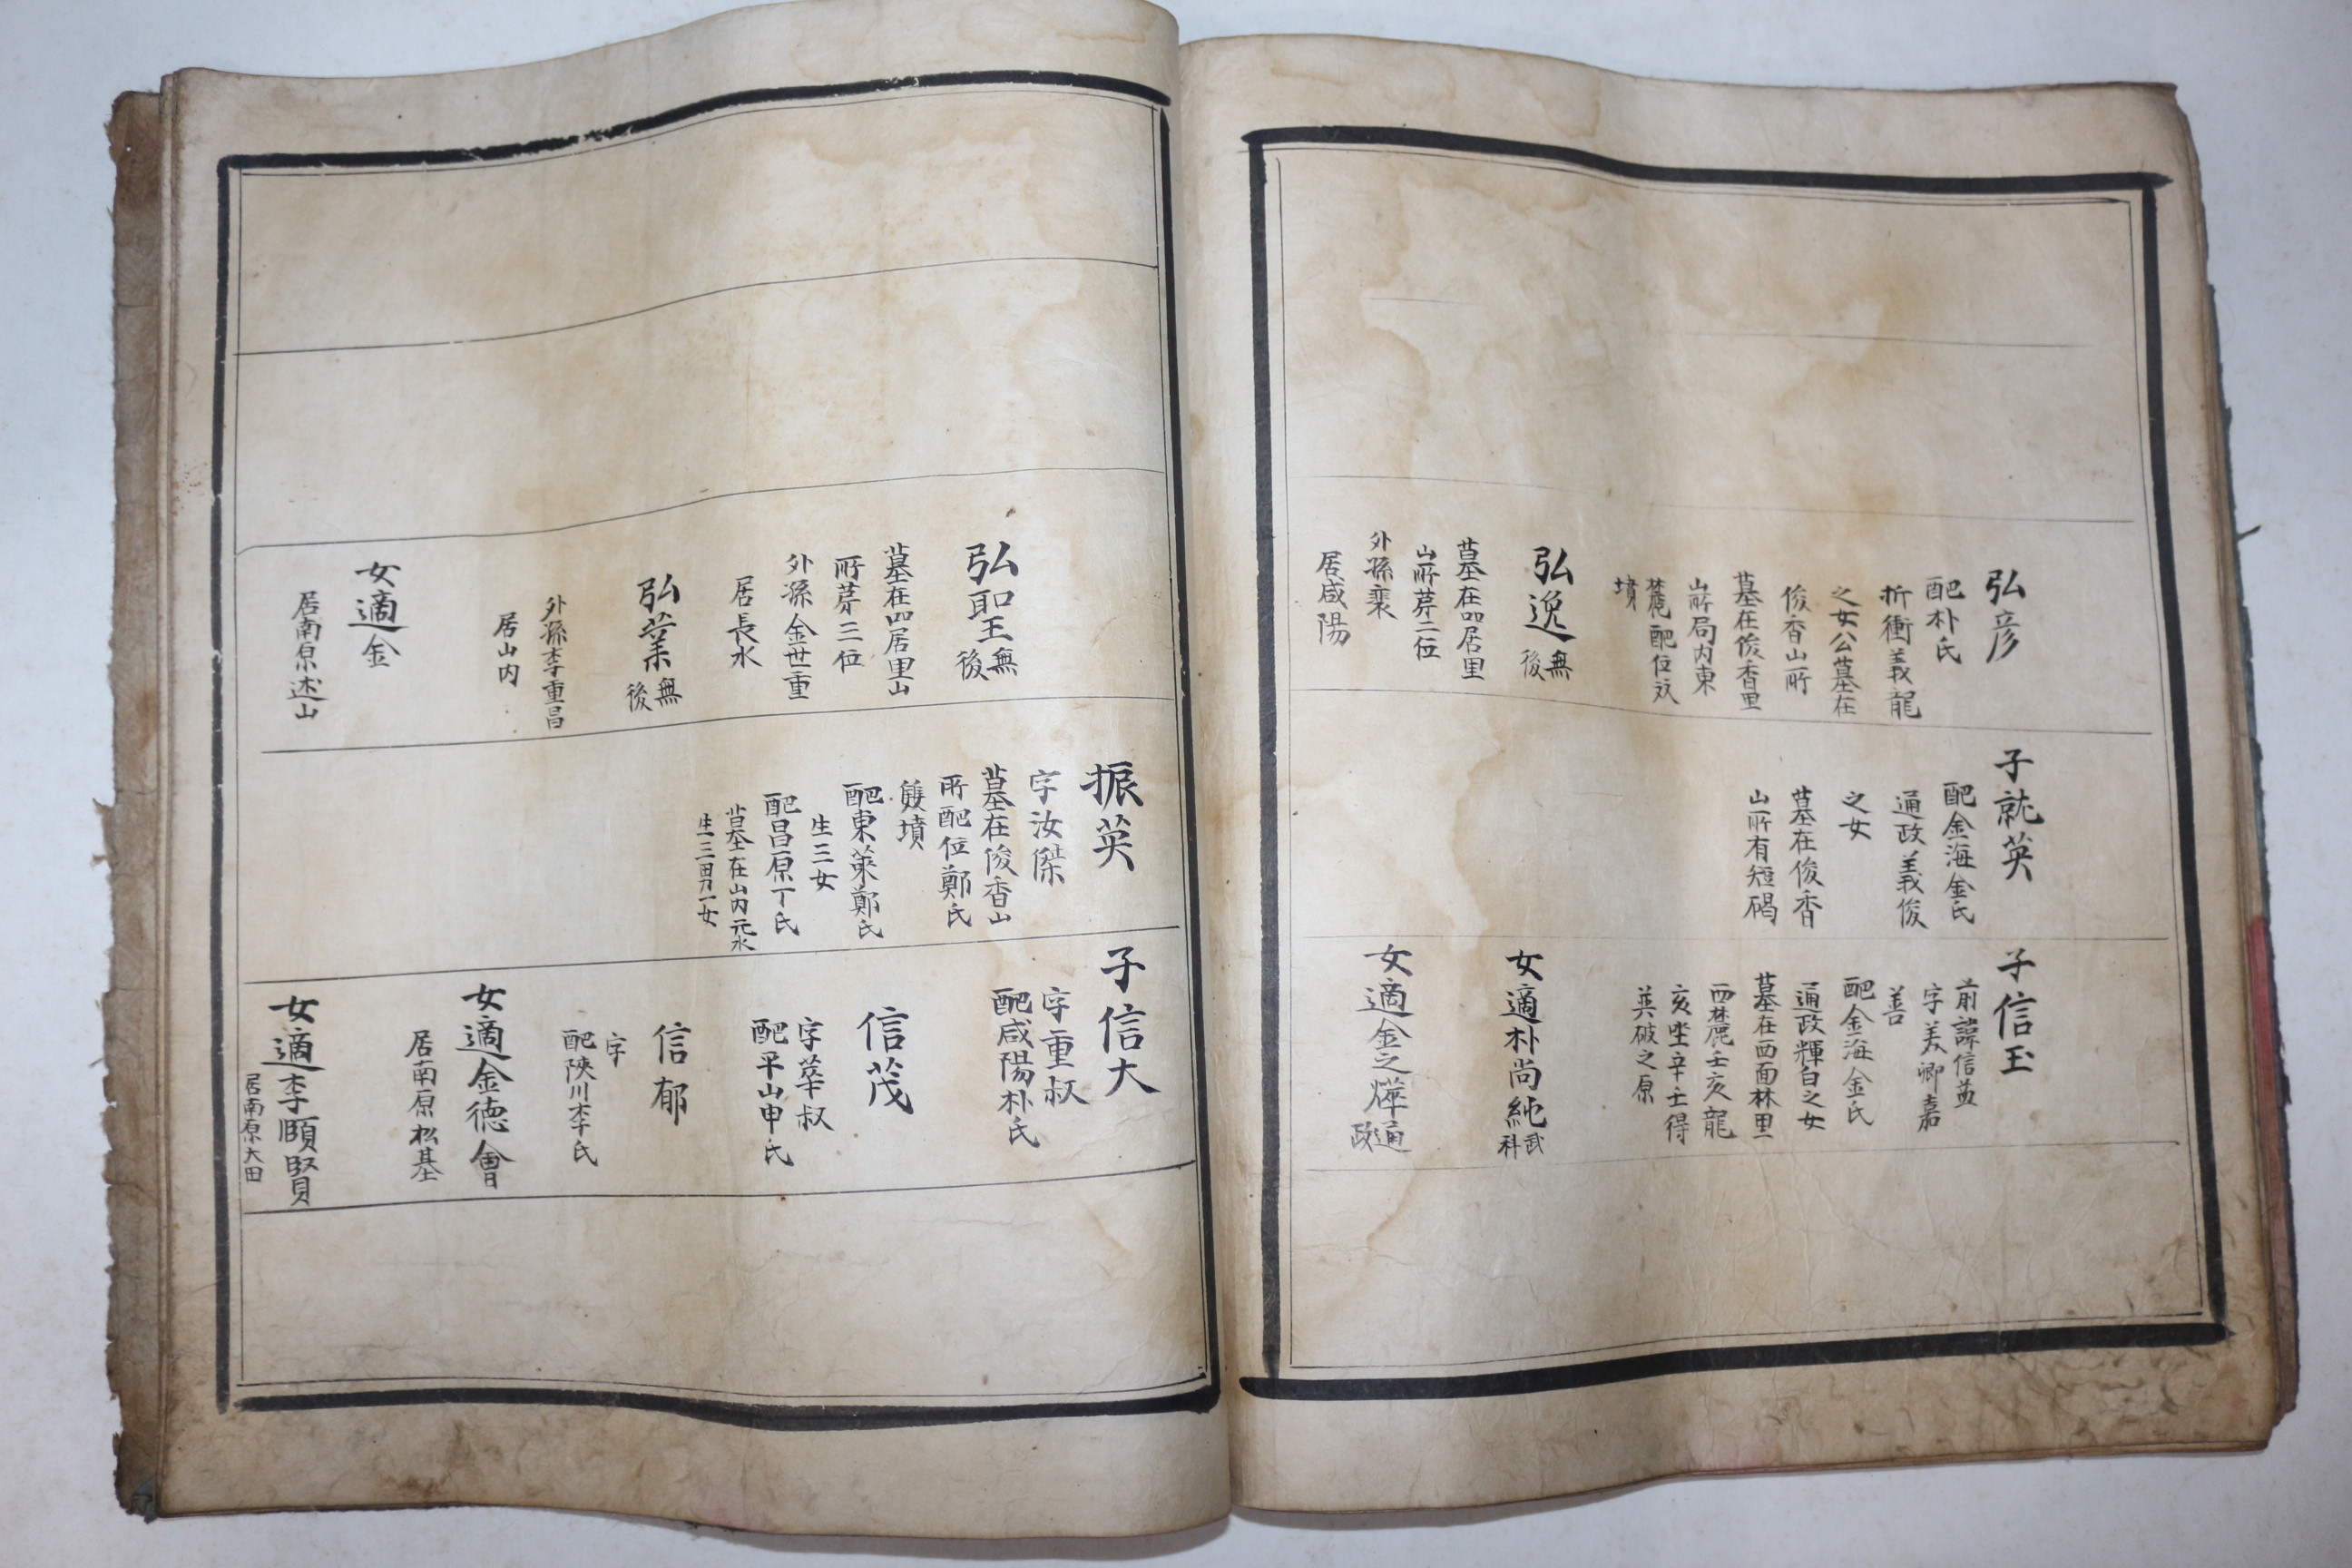 弘彦
配朴氏
折衝義龍
之女公墓在
俊香山所
墓在俊香里
山所局内東
麓配位双
墳
弘逸無後
墓在四居里
山所芽二位
外孫裵
居咸陽
子就英
配金海金氏
通政義俊
之女
墓在俊香
山所有短碣
子信玉
前諱信益
字美卿嘉
善
配金海金氏
通政輝白之女
墓在西面林里
西麓壬亥龍
亥坐辛壬得
英破之原
女適朴尚純武科
女適金之燁通政
弘聖無後
墓在四居里山
所芽三位
外孫金世重
居長水
弘業無後
外孫李重昌
居山内
女適金
居南原述山
振英
字汝傑
墓在俊香山
所配位鄭氏
雙墳
配東萊鄭氏
生三女
配昌原丁氏
墓在山内元水
生三男一女
子信大
字重叔
配咸陽朴氏
信茂
字萃叔
配平山申氏
信郁
字
配陜川李氏
女適金德會
居南原松基
女適李頤賢
居南原大田